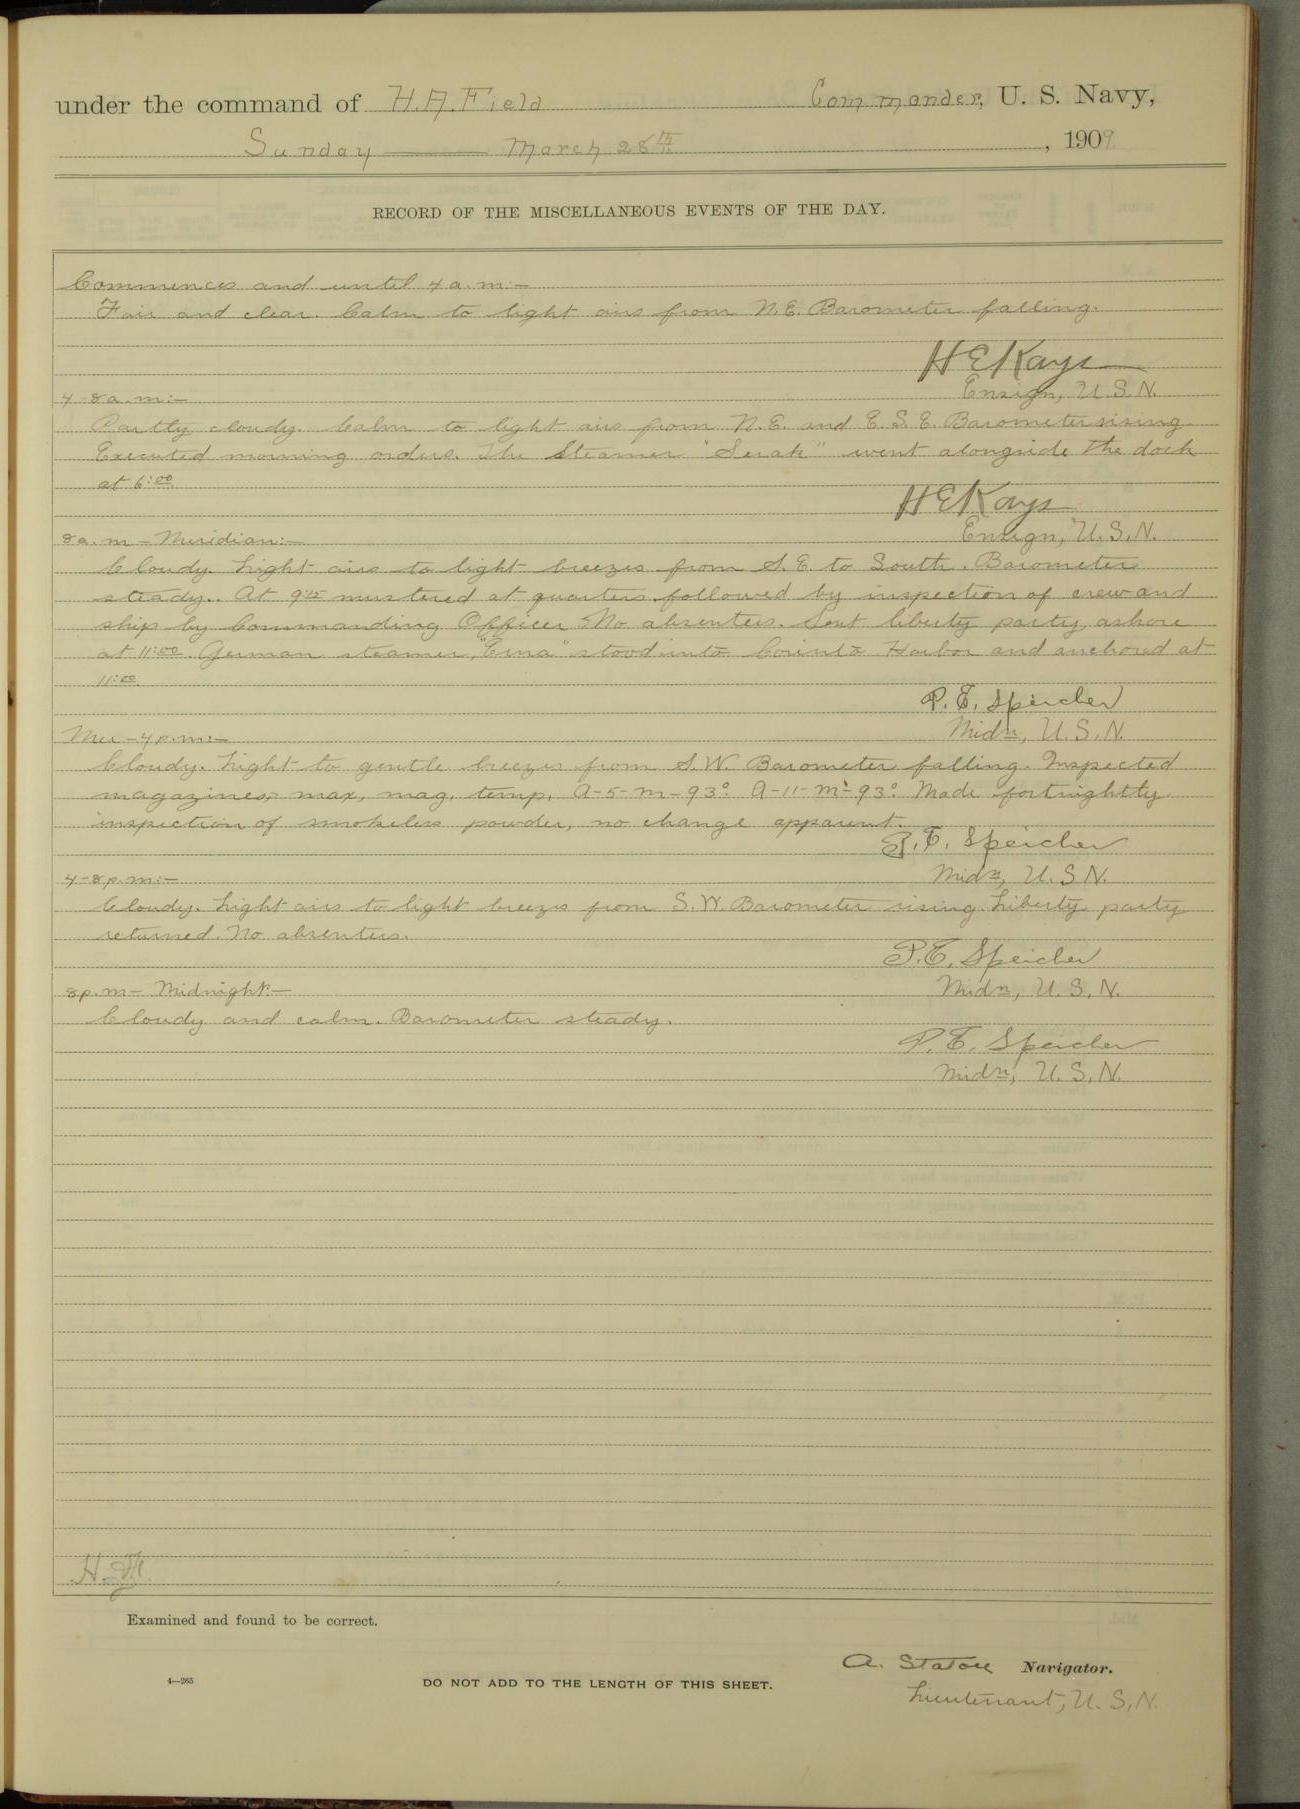 under the command of H.A.Field Commander, U. S. Navy,
Sunday — March 28th, 1909
RECORD OF THE MISCELLANEOUS EVENTS OF THE DAY.
Commences and until 4 a.m:—
Fair and clear. Calm to light airs from N.E. Barometer falling.
H E Kays
Ensign, U.S.N.
4-8 a.m:—
Partly cloudy. Calm to light airs from N.E. and E.S.E. Barometer rising.
Executed morning orders. The Steamer "Serak" went alongside the dock
at 6:00.
H E Kays
Ensign, U.S.N.
8 a.m — Meridian:—
Cloudy. Light airs to light breezes from S.E. to South. Barometer
steady. At 9:15 mustered at quarters followed by inspection of crew and
ship by Commanding Officer. No absentees. Sent liberty party ashore
at 11:00. German steamer, "Erna" stood into Corinto Harbor and anchored at
11:00.
P. E. Speicher
Midn, U.S.N.
Mer - 4 p.m:—
Cloudy. Light to gentle breezes from S.W. Barometer falling. Inspected
magazines, max, mag, temp, A-5-M-93° A-11-M-93° Made fortnightly
inspection of smokeless powder, no change apparent.
P. E. Speicher
Midn, U.S.N.
4-8 p.m:—
Cloudy. Light airs to light breezes from S.W. Barometer rising. Liberty party
returned. No absentees.
P. E. Speicher
Midn, U.S.N.
8 p.m — Midnight:—
Cloudy and calm. Barometer steady.
P. E. Speicher
Midn, U.S.N.
Examined and found to be correct.
A. Staton Navigator.
4—265 DO NOT ADD TO THE LENGTH OF THIS SHEET.
Lieutenant, U.S.N.